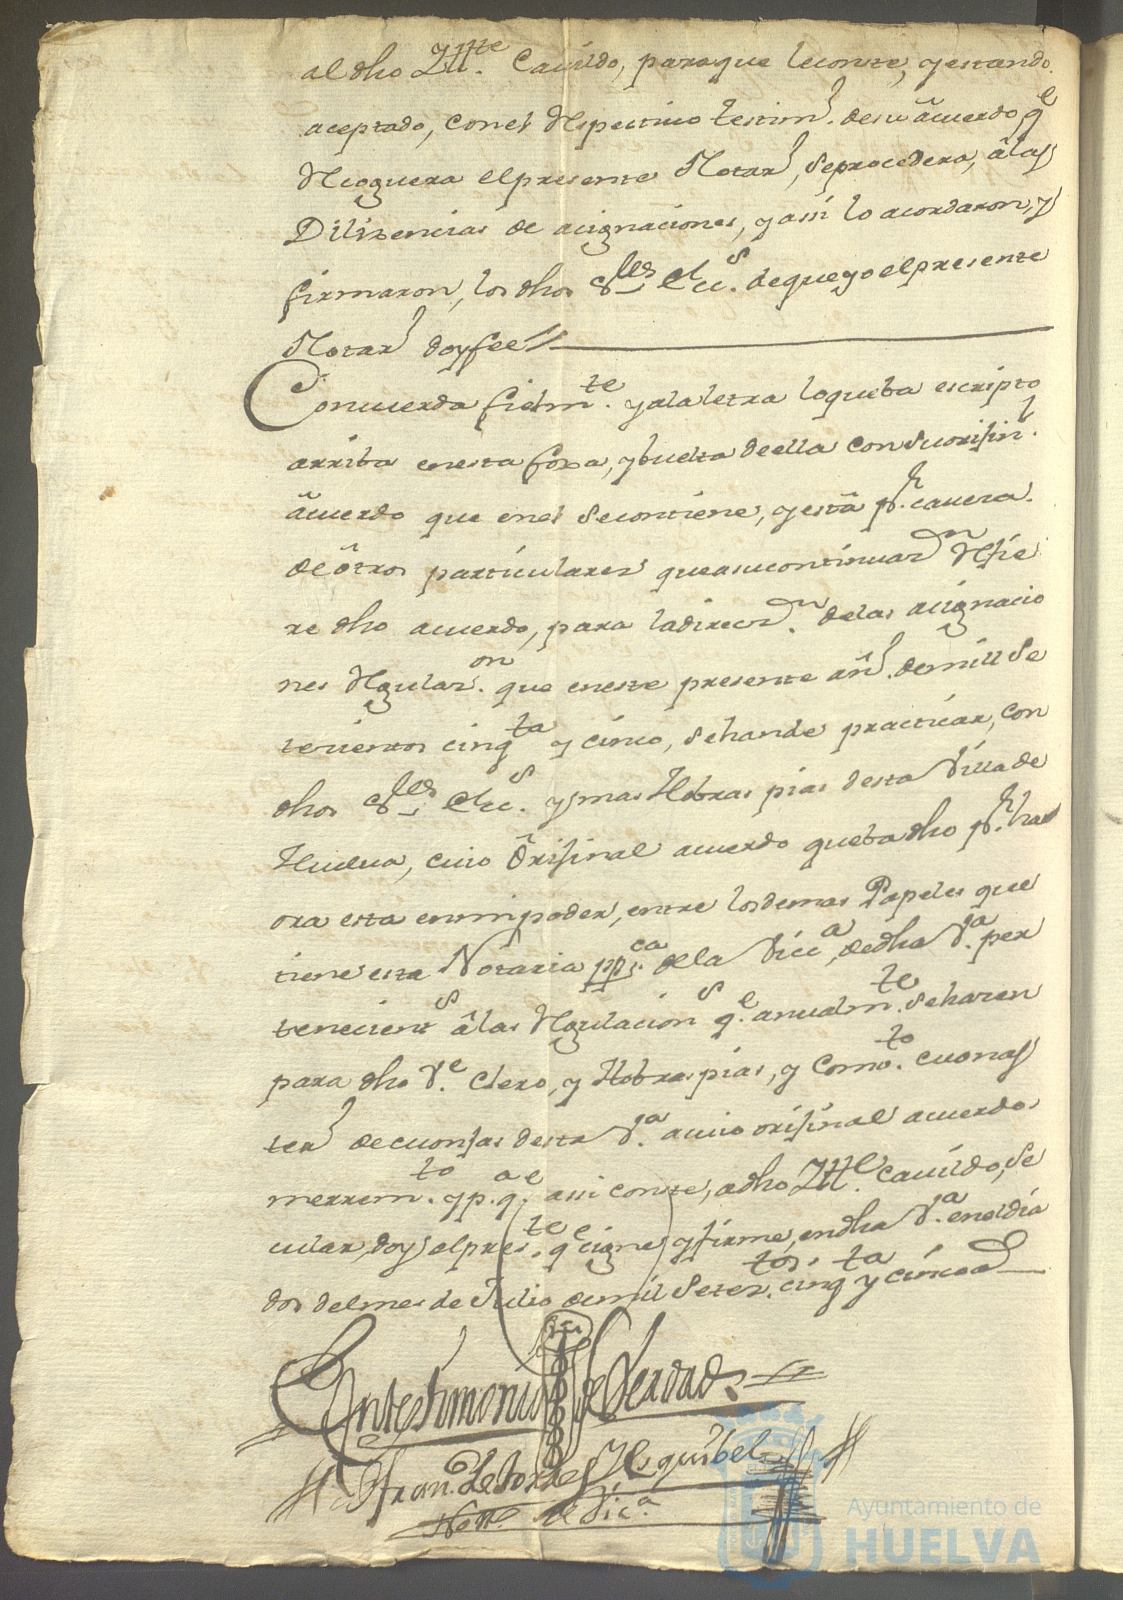 al dho Ille. Cavildo, paraque leconste, y estando
aceptado, con el Respectivo testim.l desu acuerdo, q.e
Recoguera el presente Notar.l, Seprocedera, â las
Dilixencias de asignaciones, y asi lo acordaron, y
firmaron, los dhos S.res Ecc.s dequeyo el presente
Notar.l doy fee
Concuerda fielm.te y ala letra loqueba escripto
arriba en esta foxa, y buelta de ella con su orixin.l
âcuerdo que en el Secontiene, y está p.r cavera
de ôtros particulares queasucontinuaz.on Refie
re dho acuerdo, para ladirecz.n delas asignacio
nes Regulaz.on que eneste presente añ.l demill Se
tecientos cinq.ta y cinco, Sehande practicar, con
dhos S.res Ecc.s y mas Hobras pias desta Villa de
Huelva, cuio Orixinal acuerdo queba dho p.r ha
ora esta en mi poder, entre los demas Papeles que
tiene esta Notaria pp.ca dela Vicc.a dedha V.a per
tenecient.s â las Regulacion.s q.e anualm.te Seharen
para dho V.e Clero, y Hobras pias, y Como.to
desta V.a acuio orixinal acuerdo
merrem.to y p.a q.e asi conste, adho Ille. Cavildo, Se
cular, doy el pres.te q.e signe, y firme, en dha V.a en el dia
dos delmes de Julio demil Setez.tos cinq.ta y cinco a.s
En testimonio de Verdad.
Fran.co de torres Y Esquibel
Not.o de Vic.a
Ayuntamiento de
HUELVA